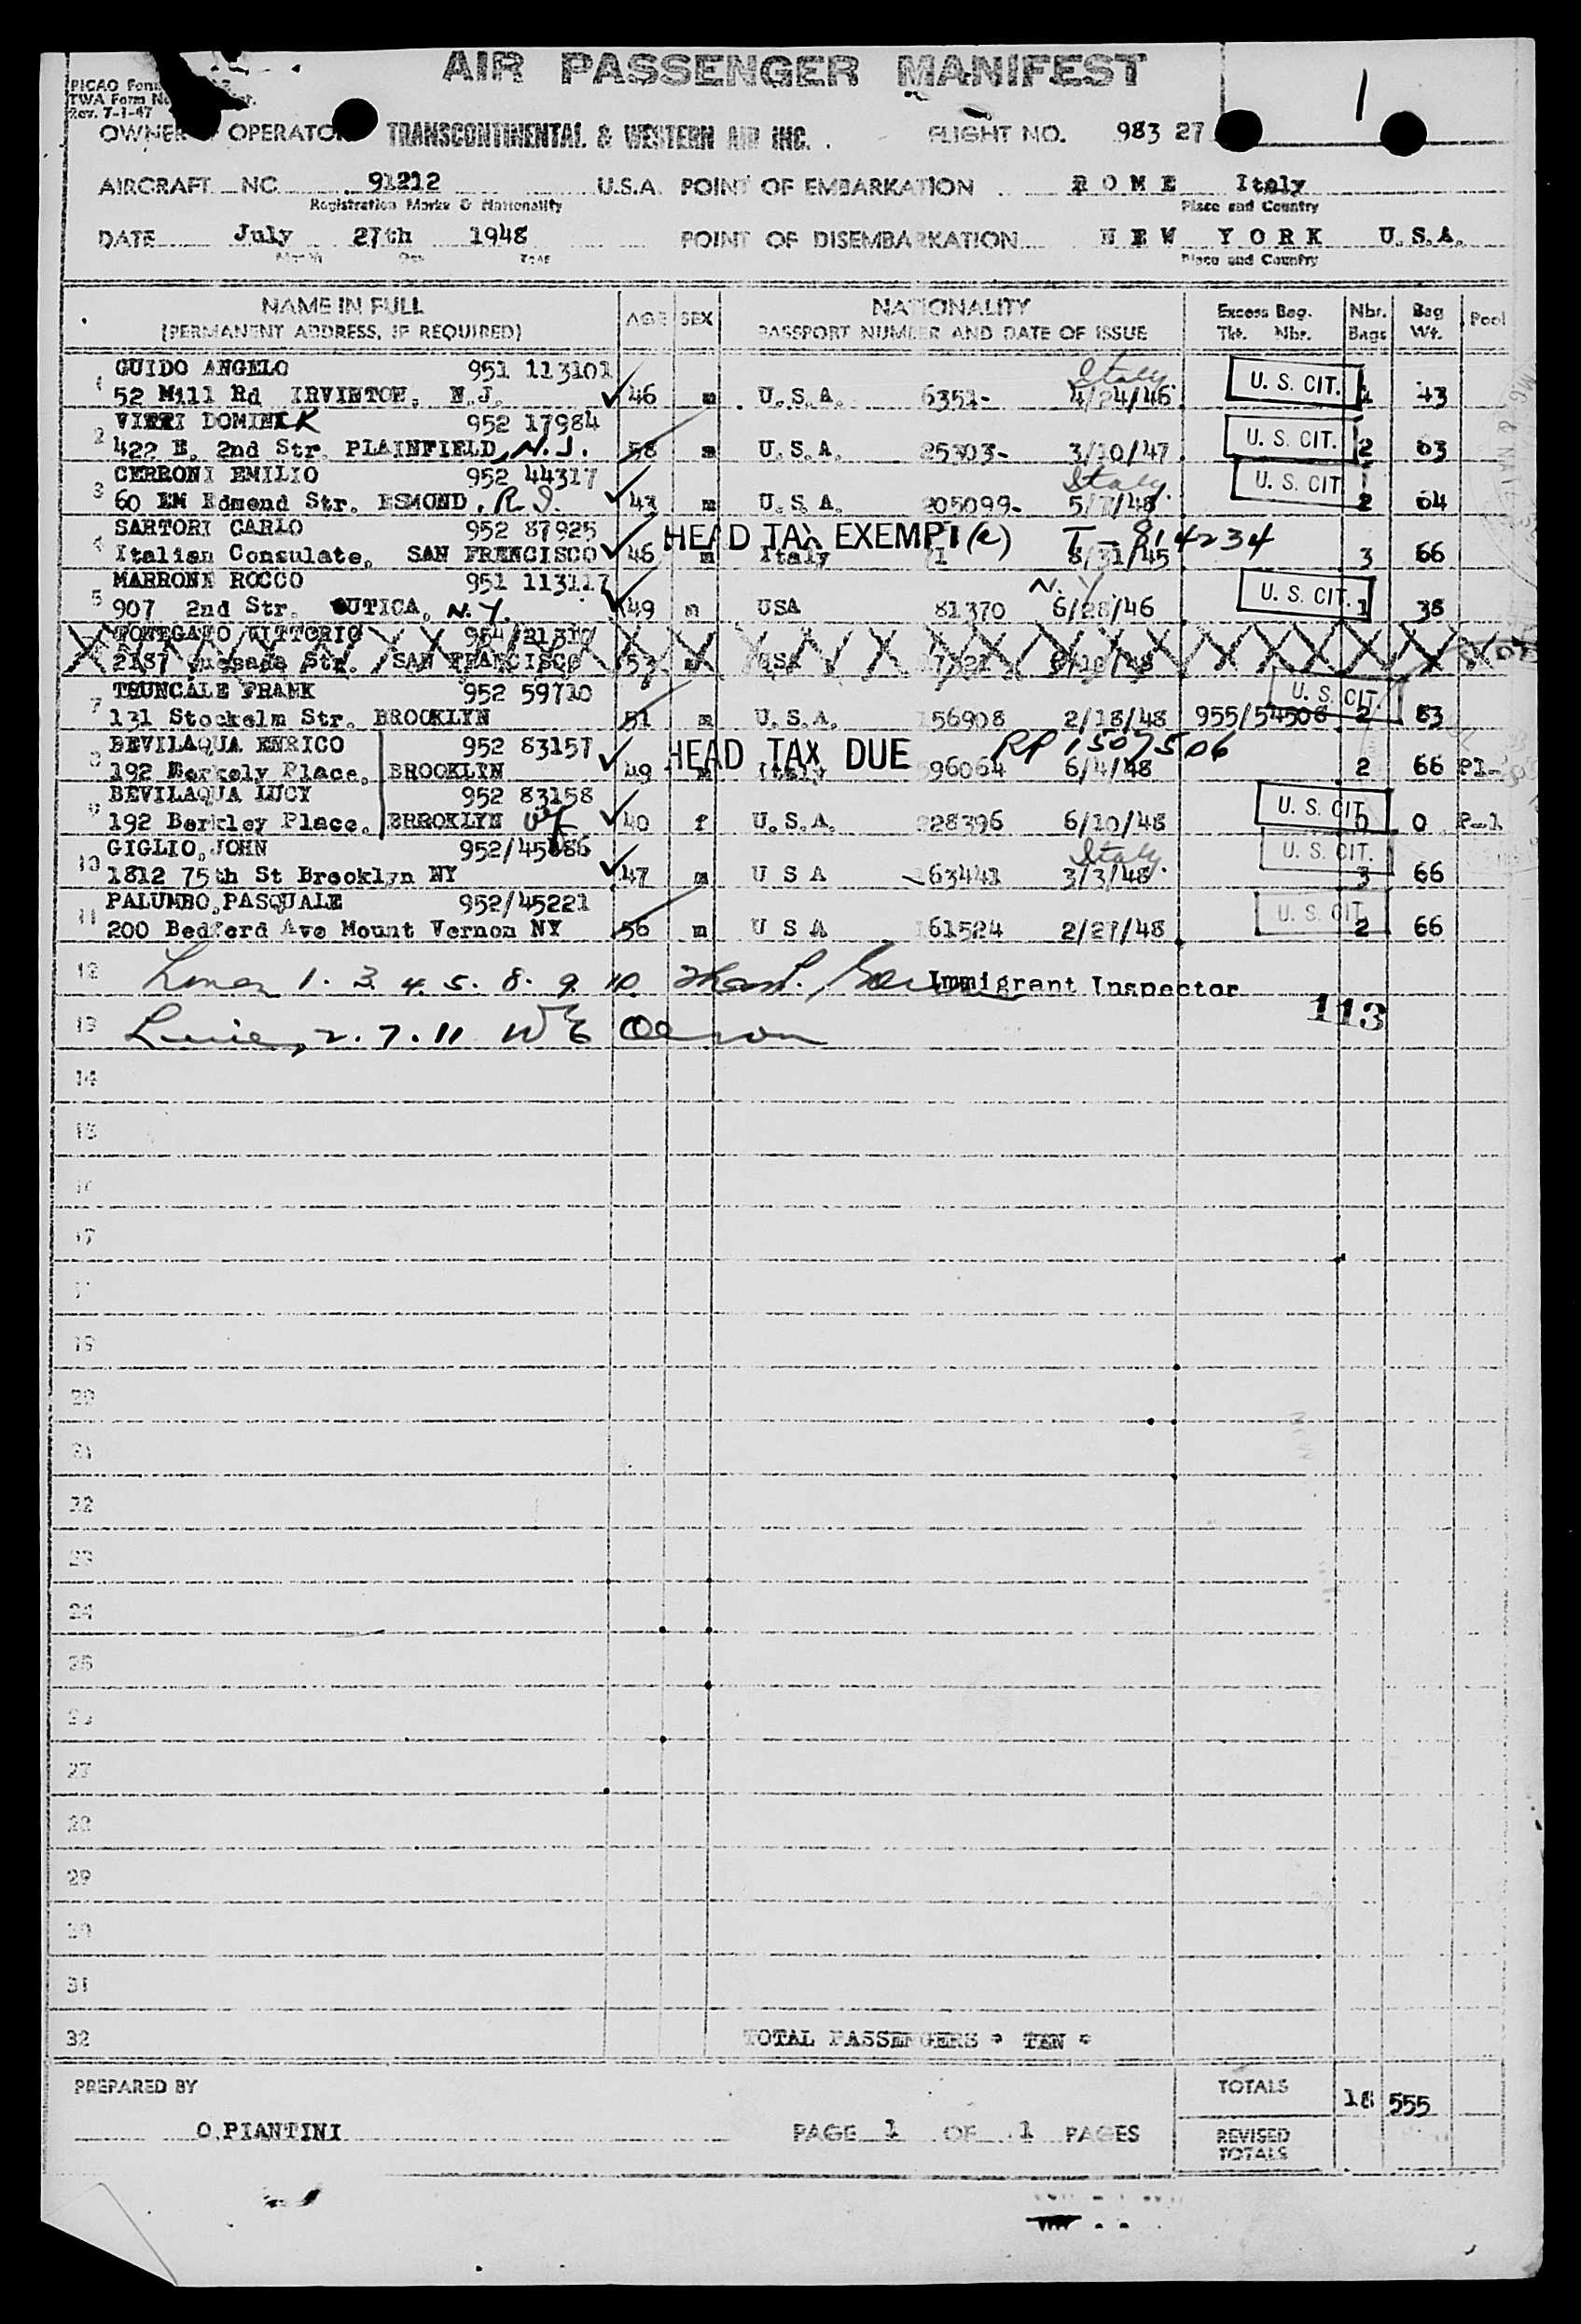 AIR PASSENGER MANIFEST
PICAO Form
TWA Form No.
Rev. 7-1-47
1
OWNER OPERATOR TRANSCONTINENTAL & WESTERN AIR INC. . FLIGHT NO. 983 27
AIRCRAFT NC 91212 U.S.A. POINT OF EMBARKATION ROME Italy
Registration Marks & Nationality Place and Country
DATE July 27th 1948 POINT OF DISEMBARKATION NEW YORK U.S.A.
Month Day Year Place and Country
NAME IN FULL AGE SEX NATIONALITY Excess Bag. Nbr. Bag Pool
(PERMANENT ADDRESS, IF REQUIRED) PASSPORT NUMBER AND DATE OF ISSUE Tkt. Nbr. Bags Wt.
GUIDO ANGELO 951 113101 Italy U. S. CIT.
1 52 Mill Rd IRVINTON, N.J. 46 m U.S.A. 6351- 4/24/46 1 43
VITTI DOMINIK 952 17984 U. S. CIT.
2 422 E. 2nd Str. PLAINFIELD, N.J. 58 m U.S.A. 25303- 3/10/47 2 63
CERRONI EMILIO 952 44317 Italy U. S. CIT
3 60 EM Edmond Str. ESMOND, R.I. 43 m U.S.A. 205099- 5/7/48 2 64
SARTORI CARLO 952 87925 HEAD TAX EXEMPT (e) T-814234
4 Italian Consulate, SAN FRENCISCO 46 m Italy 1 8/31/45 3 66
MARRONE ROCCO 951 113117 N.Y. U. S. CIT.
5 907 2nd Str. UTICA, N.Y. 49 m USA 81370 6/28/46 1 38
VITTORIO 954/21310
2187 Quesada Str. SAN FRANCISCO 53 m USA
TRUNCALE FRANK 952 59710 U. S. CIT.
7 131 Stockelm Str. BROOKLYN 51 m U.S.A. 156908 2/18/48 955/54508 2 83
BEVILAQUA ENRICO 952 83157 HEAD TAX DUE RP 1507506
8 192 Berkely Place, BROOKLYN 49 m Italy 596064 6/4/48 2 66 P1-
BEVILAQUA LUCY 952 83158 U. S. CIT
9 192 Berkley Place, BRROKLYN 40 f U.S.A. 228396 6/10/48 0 0 P-1
GIGLIO,JOHN 952/45086 Italy U. S. CIT.
10 1812 75th St Brooklyn NY 47 m U S A 163441 3/3/48 3 66
PALUMBO,PASQUALE 952/45221 U. S. CIT
11 200 Bedferd Ave Mount Vernon NY 56 m U S A 161524 2/27/48 2 66
12 Lines 1. 3. 4. 5. 8. 9. 10. Immigrant Inspector
113
13 Lines, 2. 7. 11
14
15
16
17
19
20
21
22
23
24
25
26
27
28
29
30
31
32 TOTAL PASSENGERS = TEN =
PREPARED BY TOTALS 18 555
O.PIANTINI PAGE 1 OF 1 PAGES REVISED
TOTALS